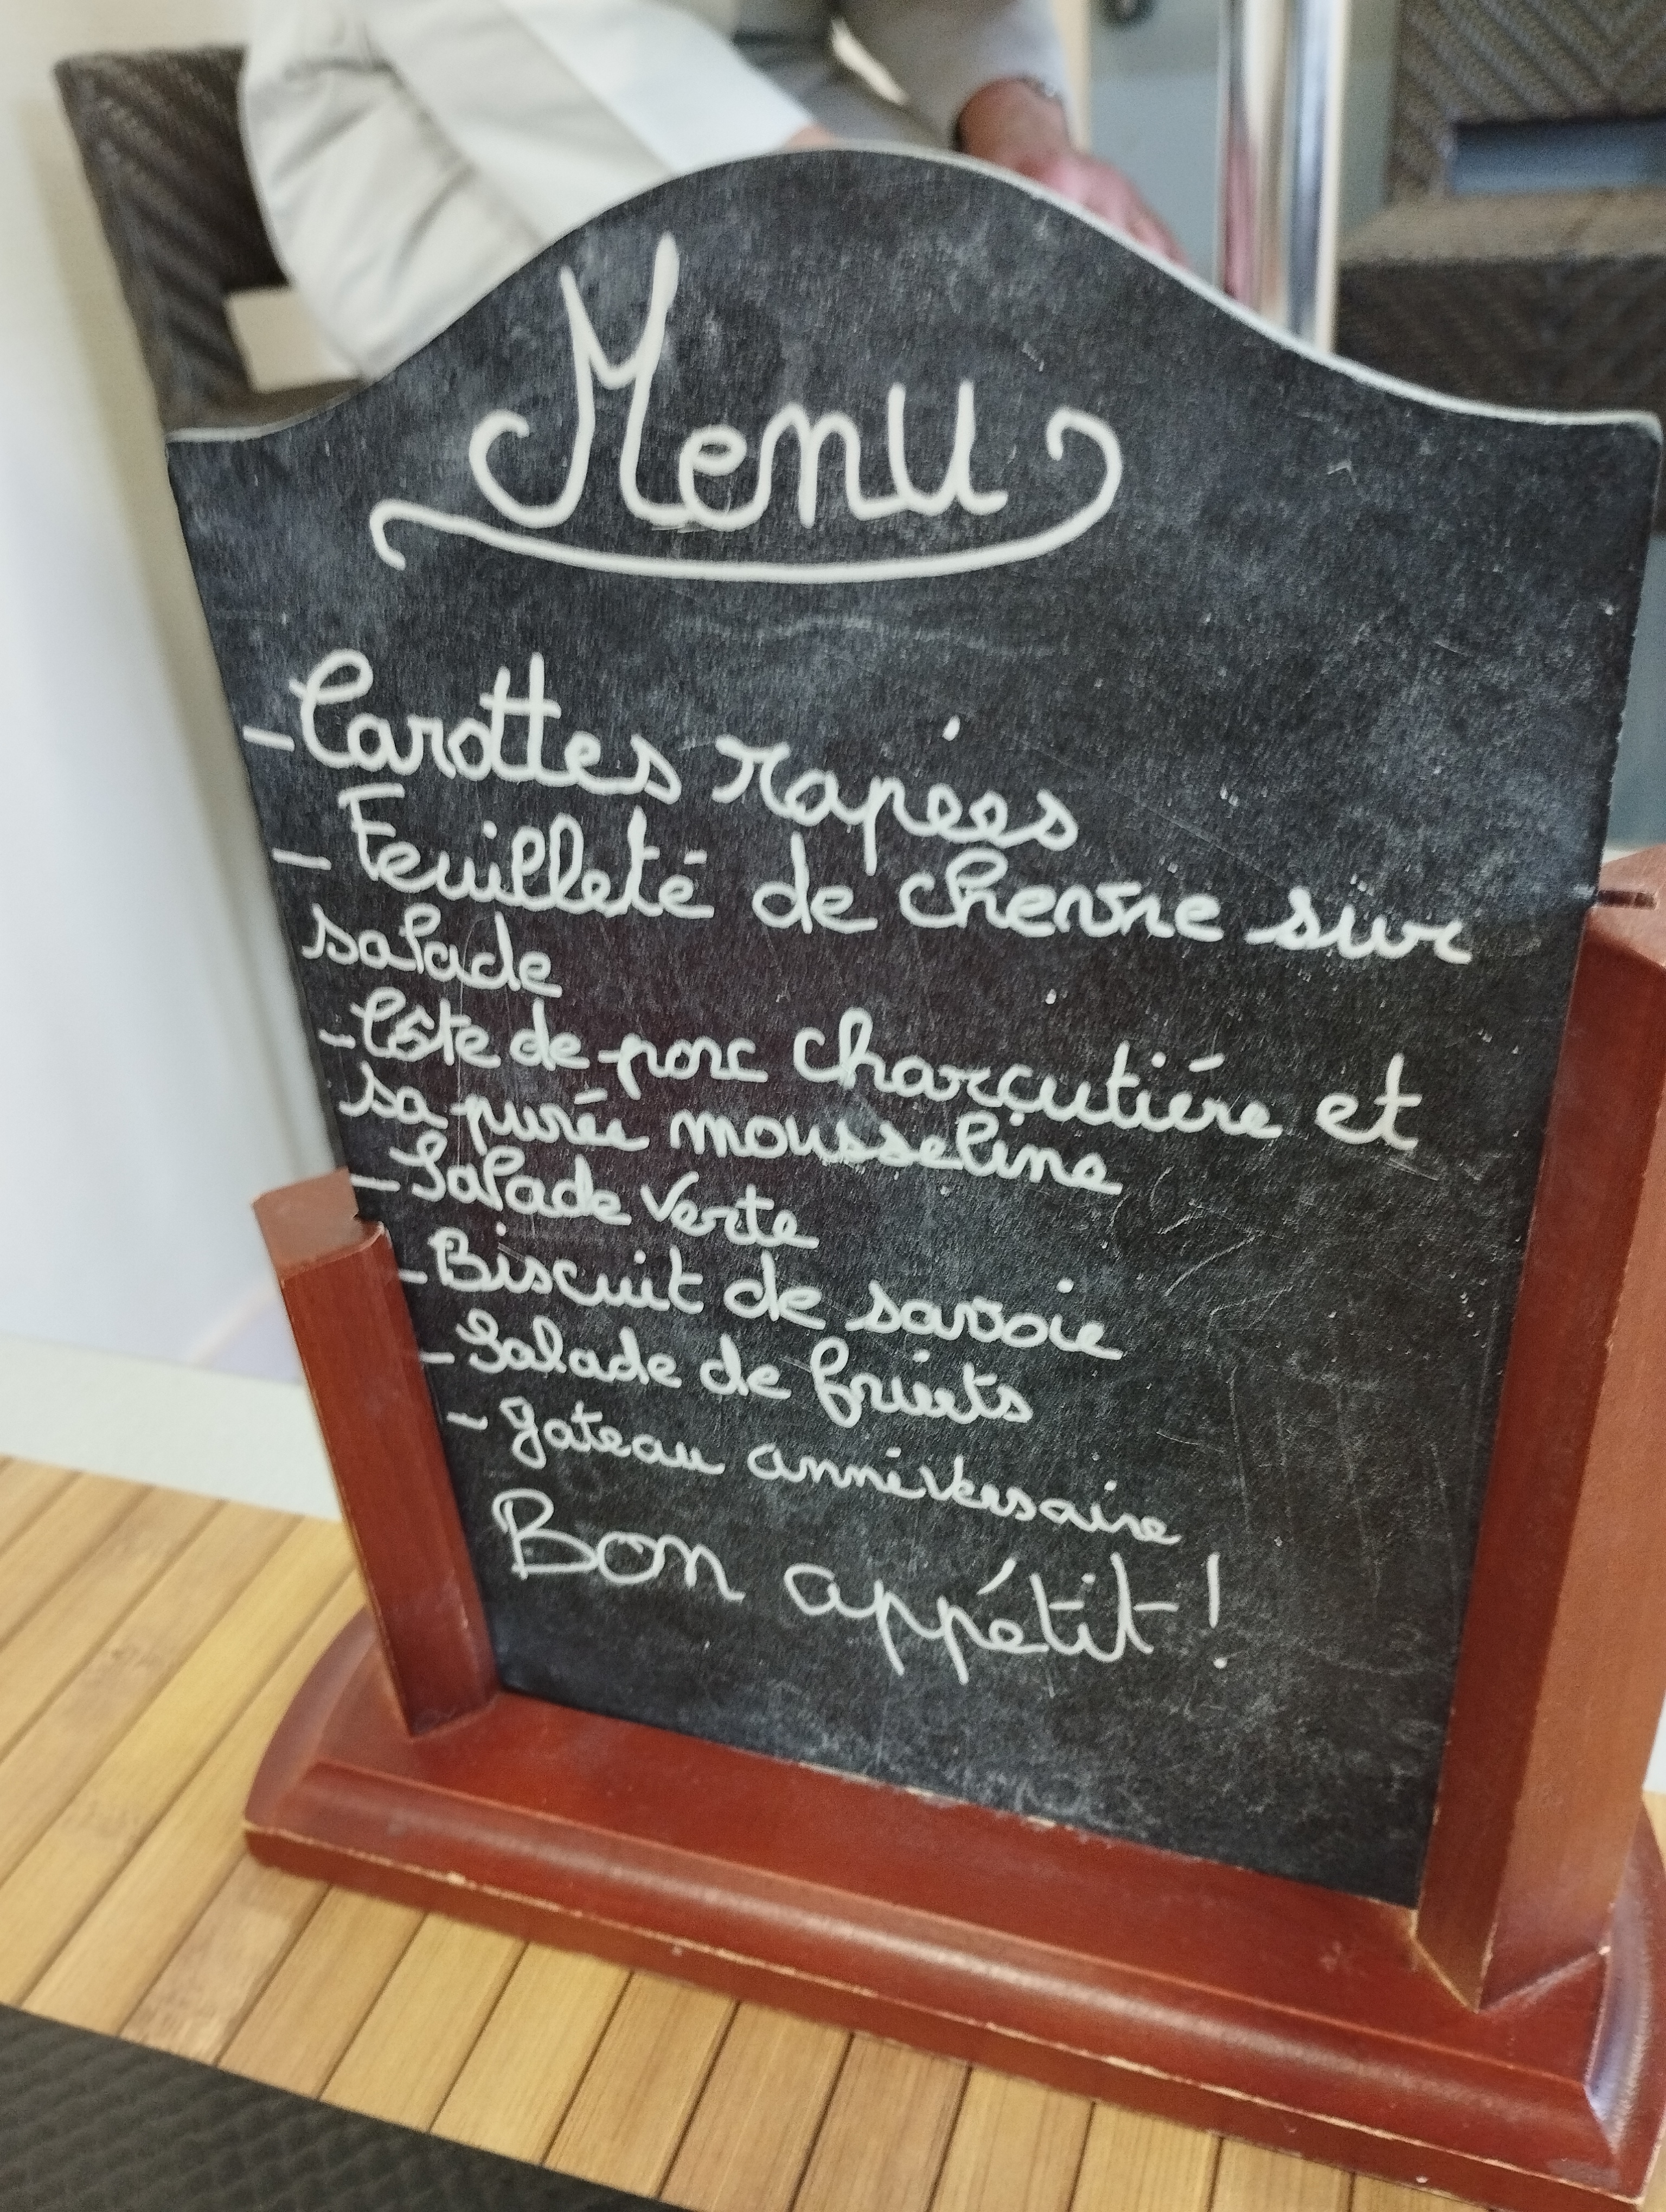 Menu
- Carottes rapées
- Feuilleté de chevre sur
salade
- Côte de porc charcutiére et
sa purée mousseline
- Salade verte
- Biscuit de savoie
- Salade de fruits
- gateau anniversaire
Bon appétit !